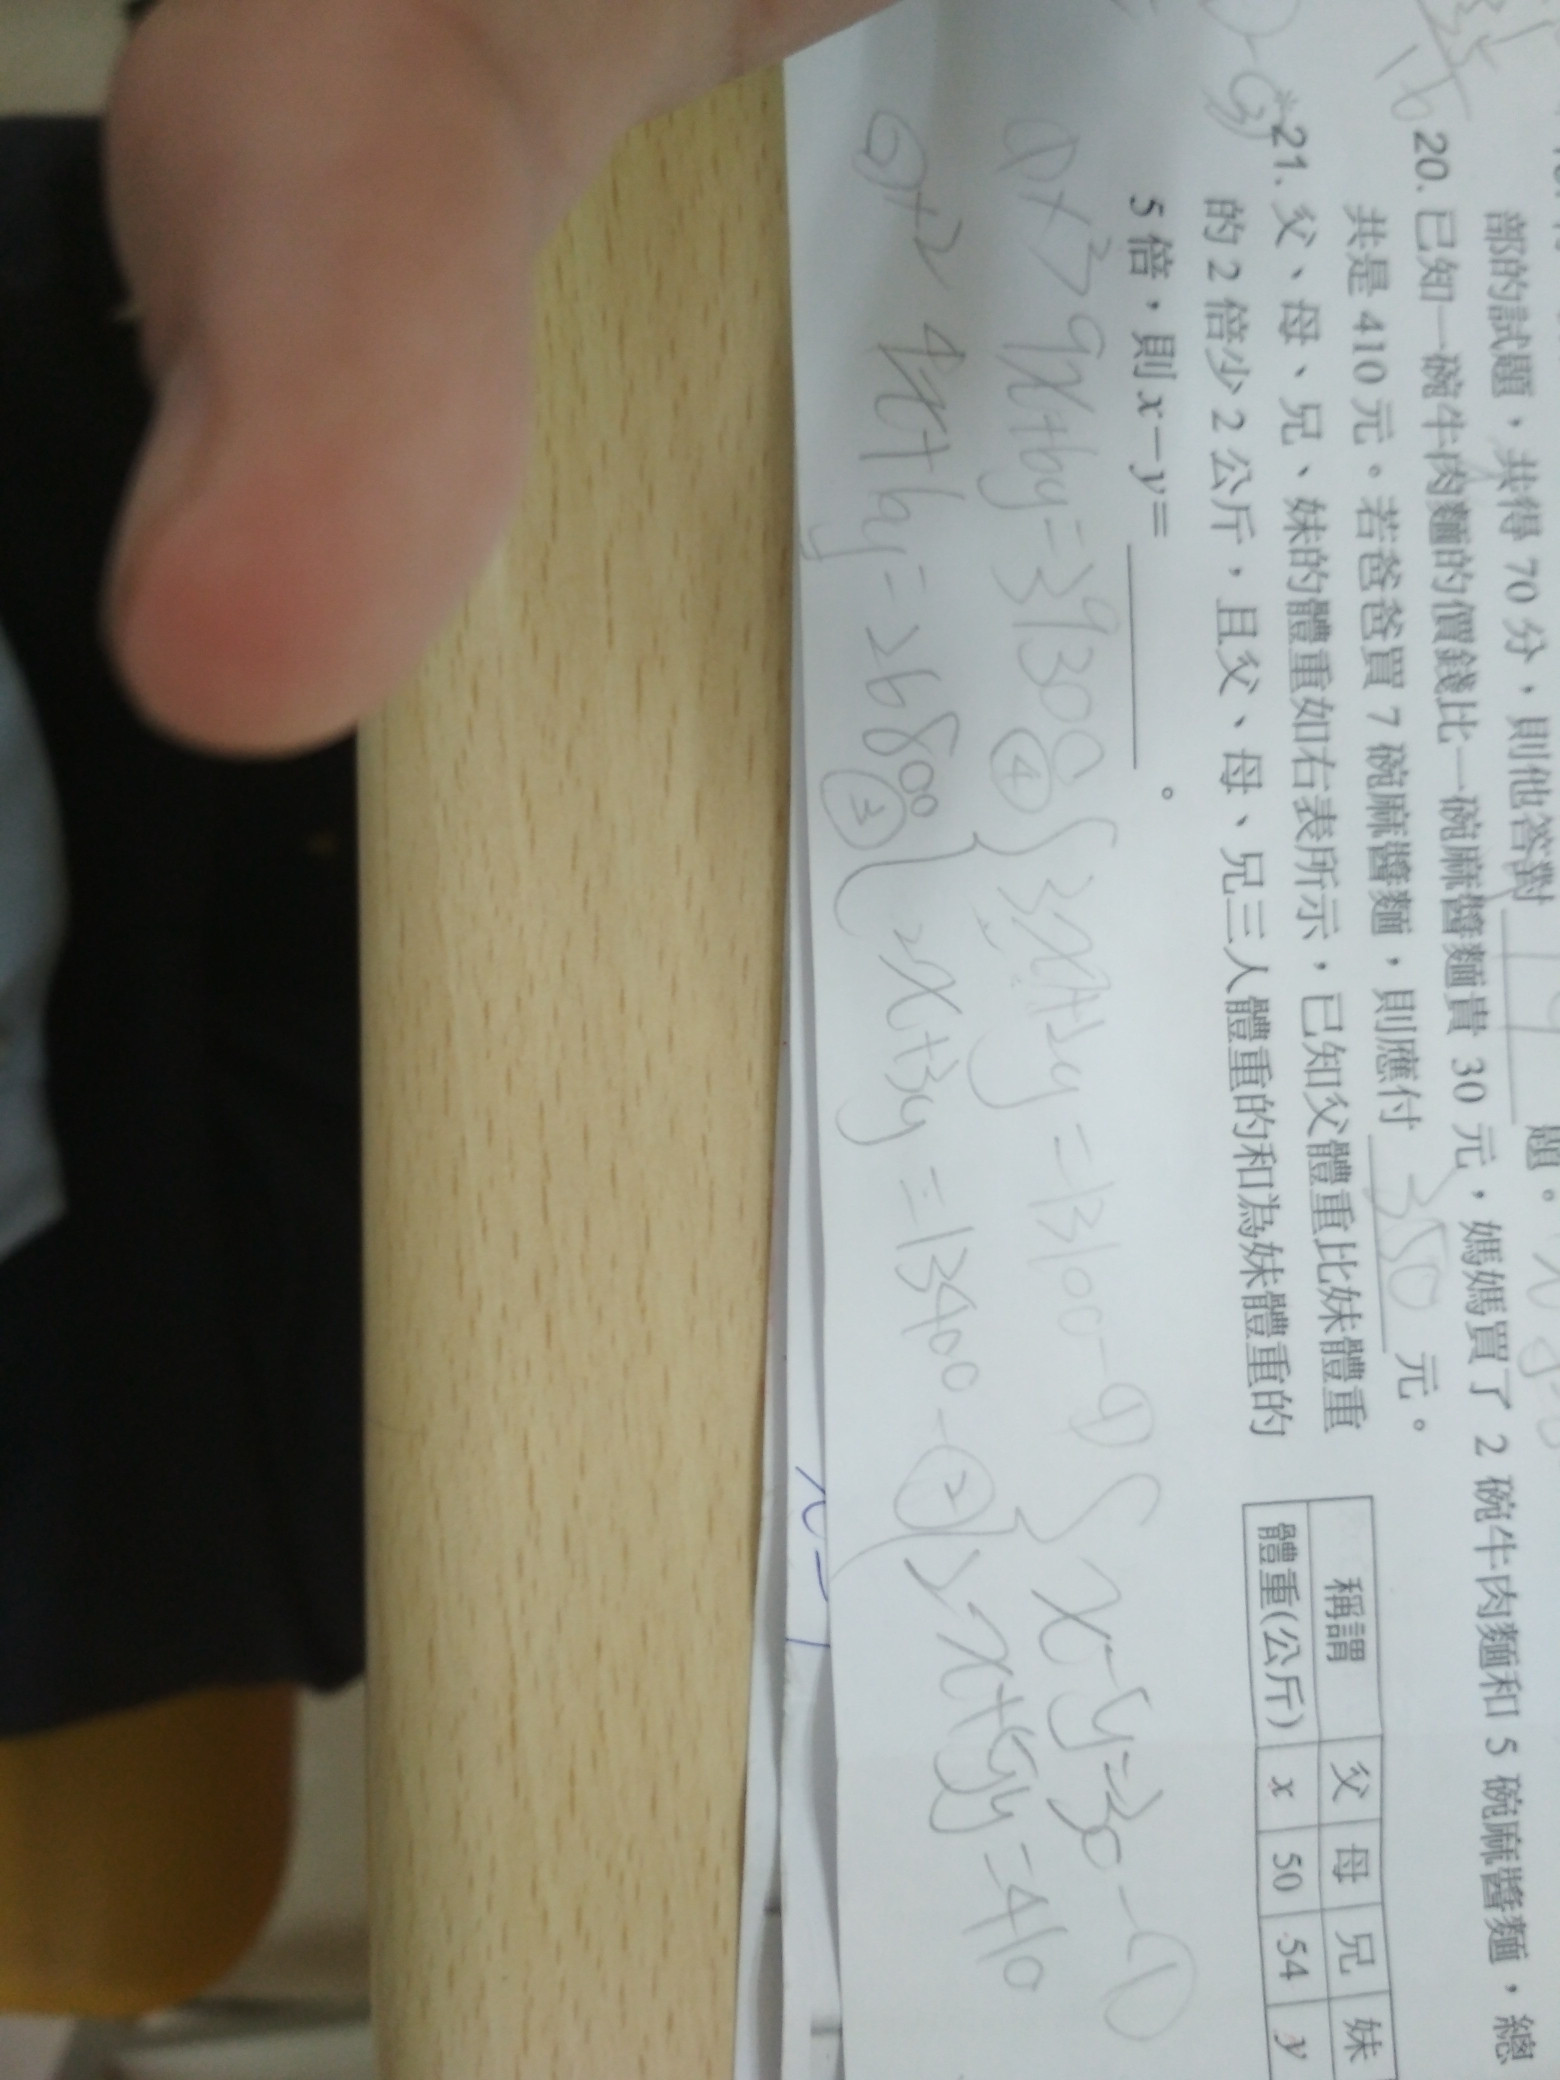 部的試題，共得 70 分，則他答對 題。
20. 已知一碗牛肉麵的價錢比一碗麻醬麵貴 30 元，媽媽買了 2 碗牛肉麵和 5 碗麻醬麵，總
共是 410 元。若爸爸買 7 碗麻醬麵，則應付 350 元。
*21. 父、母、兄、妹的體重如右表所示，已知父體重比妹體重
的 2 倍少 2 公斤，且父、母、兄三人體重的和為妹體重的
5 倍，則 x－y＝ 。
稱謂 父 母 兄 妹
體重(公斤) x 50 54 y
①×3 9x+6y=39300 ④ { 3x+2y=13100-① { x-y=30-①
②×2 4x+6y=26800 ③ 2x+3y=13400-② 2x+5y=410